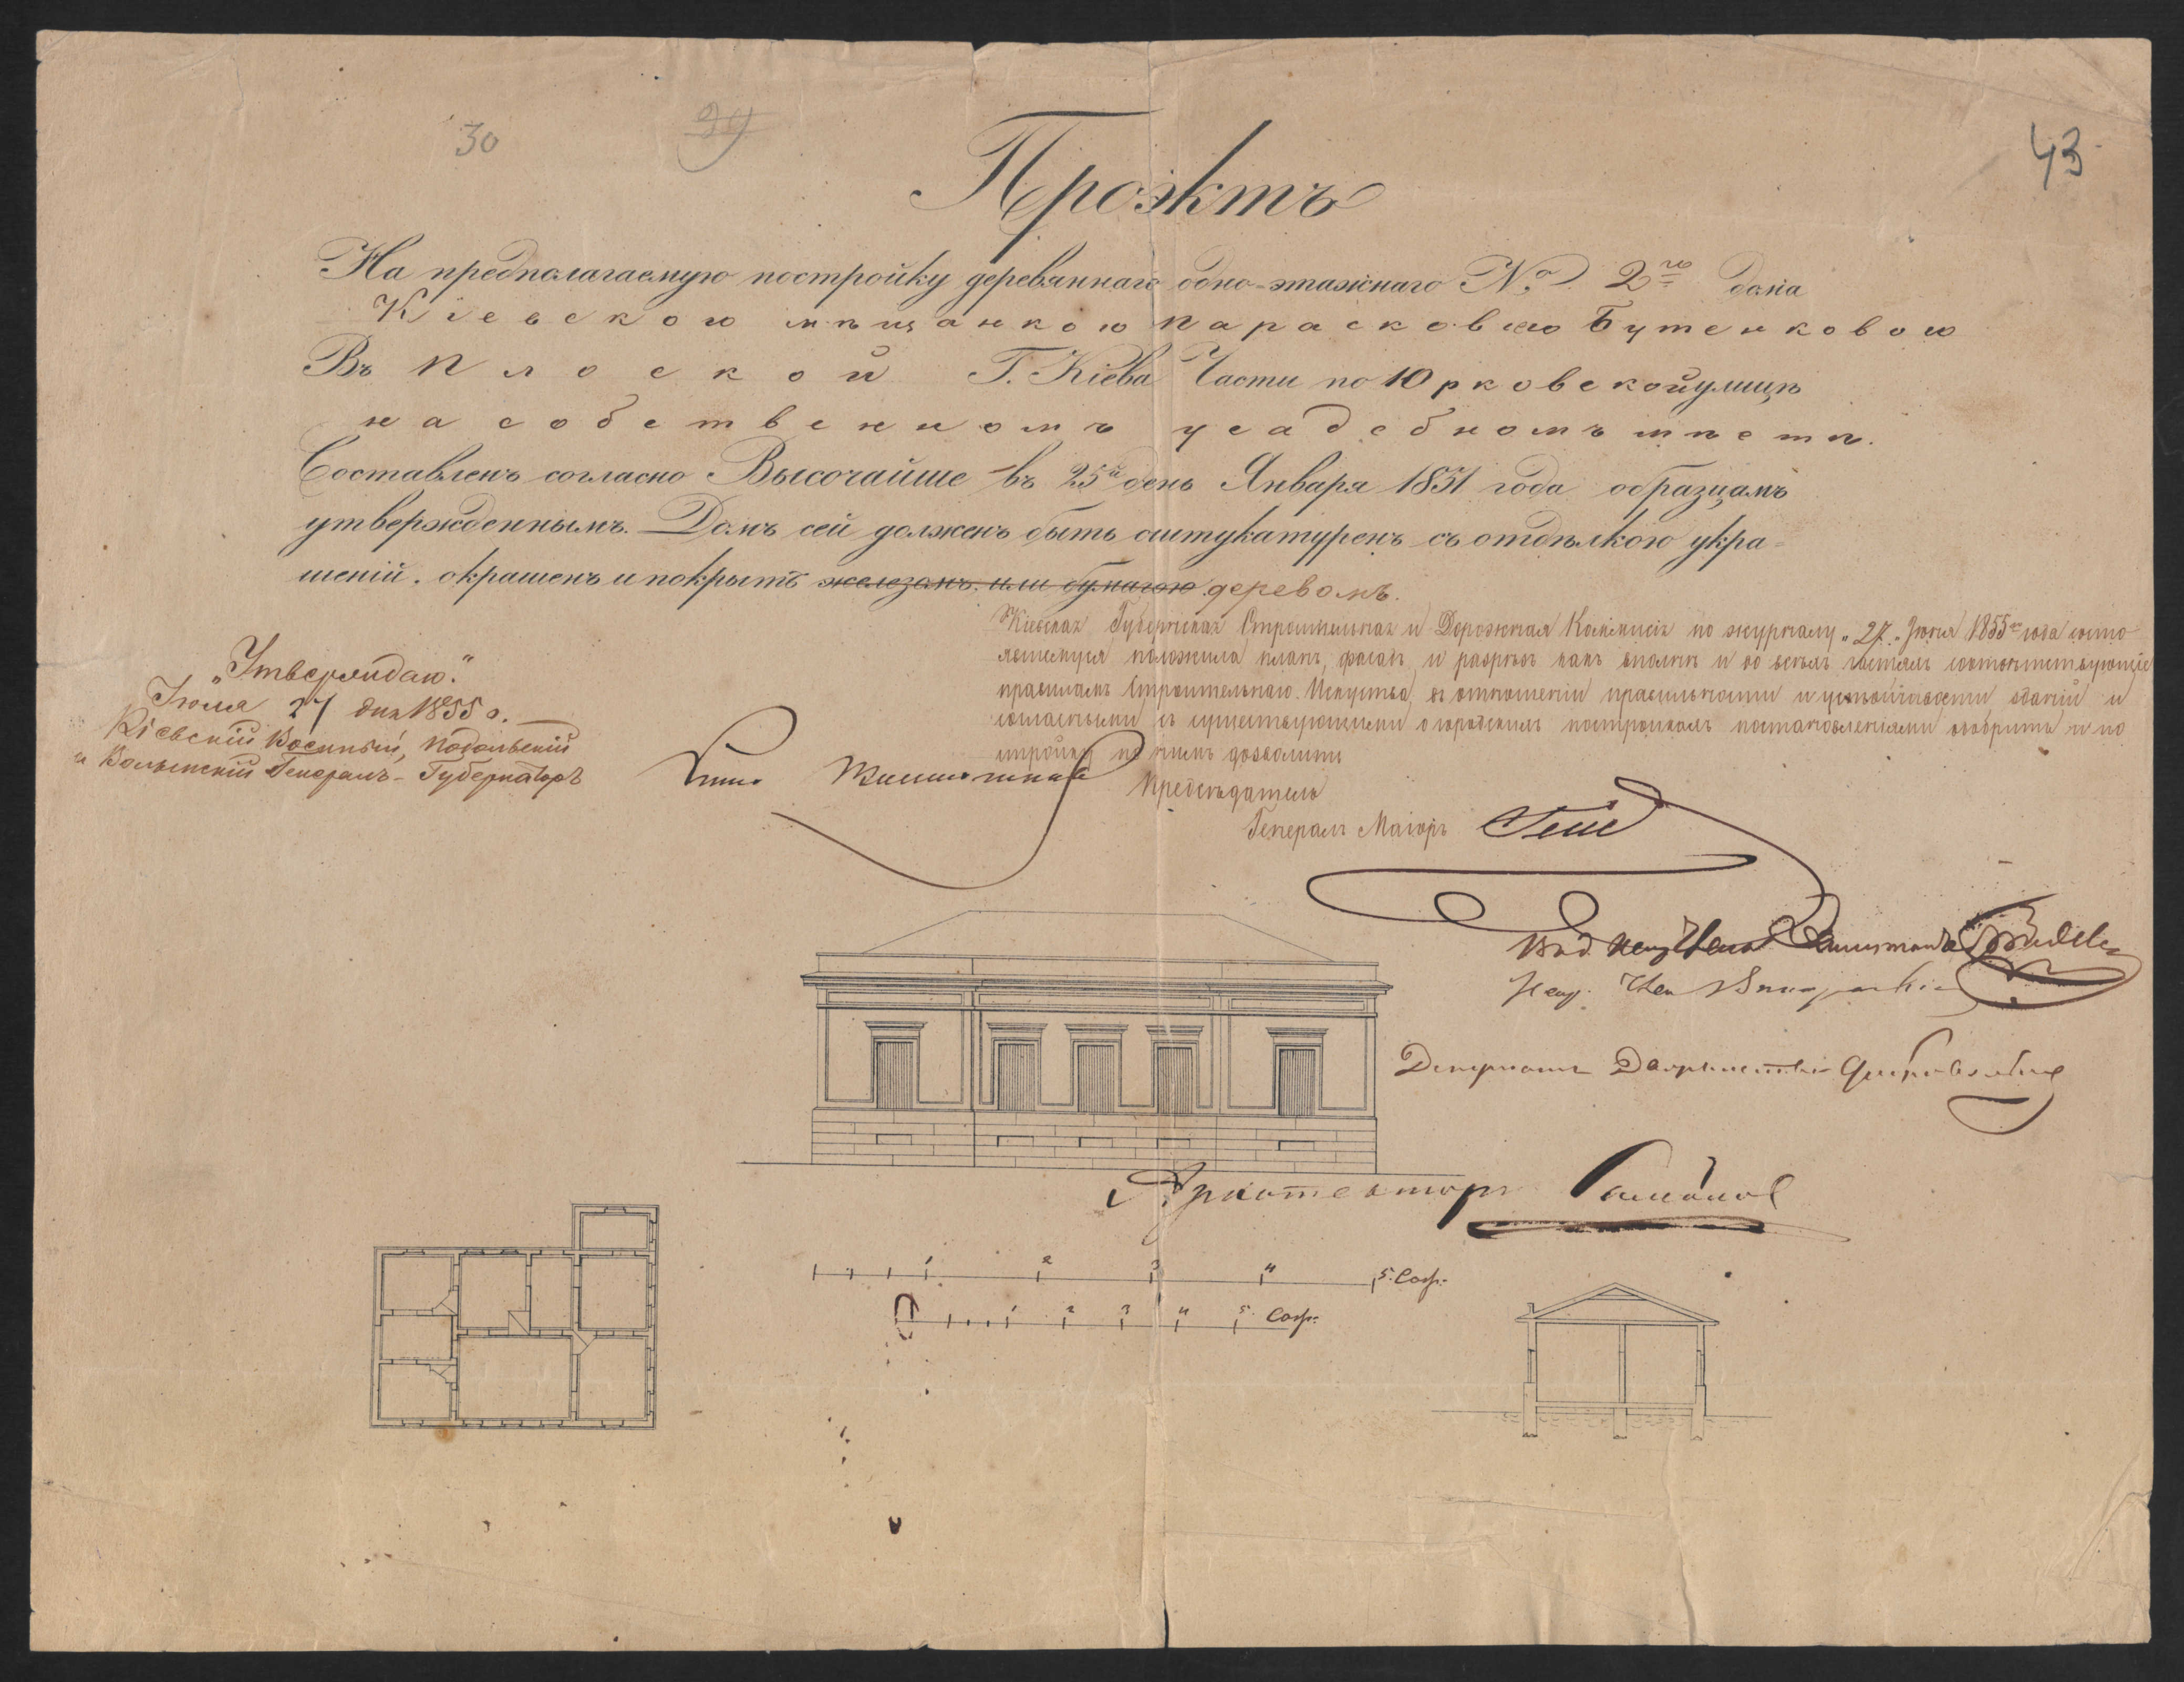 30
39
43
Проэктъ
На предполагаемую постройку деревяннаго одно-этажнаго № 2го дома
Кіевскою мѣщанкою Парасковіею Бутенковою
Въ Плоской Г. Кіева Части по Юрковской улицѣ
на собственномъ усадебномъ мѣстѣ.
Составленъ согласно Высочайше въ 25й день Января 1851 года образцамъ
утвержденнымъ. Домъ сей долженъ быть оштукатуренъ съ отдѣлкою укра-
шеній, окрашенъ и покрытъ желѣзомъ или бумагою деревомъ.
Кіевская Губернская Строительная и Дорожная Коммисія по журналу „27„ Іюля 1855го года состо-
явшемуся положила планъ, фасадъ и разрѣзъ какъ вполнѣ и во всѣхъ частяхъ соотвѣтствующіе
правиламъ Строительнаго Искуства, въ отношеніи правильности и устойчивости зданій и
согласными съ существующими о городскихъ постройкахъ постановленіями одобрить и по-
стройку по нимъ дозволить
Предсѣдатель
Генералъ Маіоръ
„Утверждаю."
Іюля 27 дня 1855 г.
Кіевскій Военный, Подольскій
и Волынскій Генералъ-Губернаторъ
Архитекторъ
1 2 3 4 5. Саж.
1 2 3 4 5. Саж.